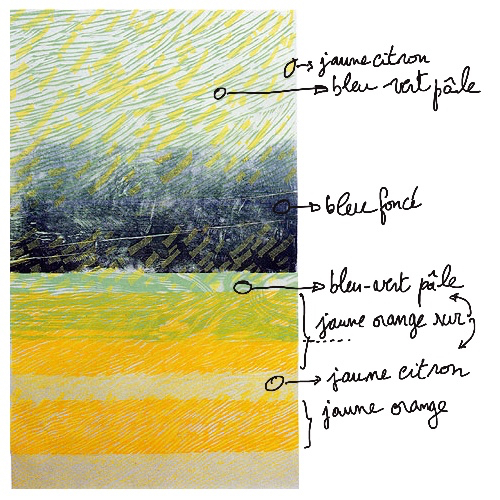 jaune citron
bleu-vert pâle
bleu foncé
bleu-vert pâle
jaune orange sur
jaune citron
jaune orange